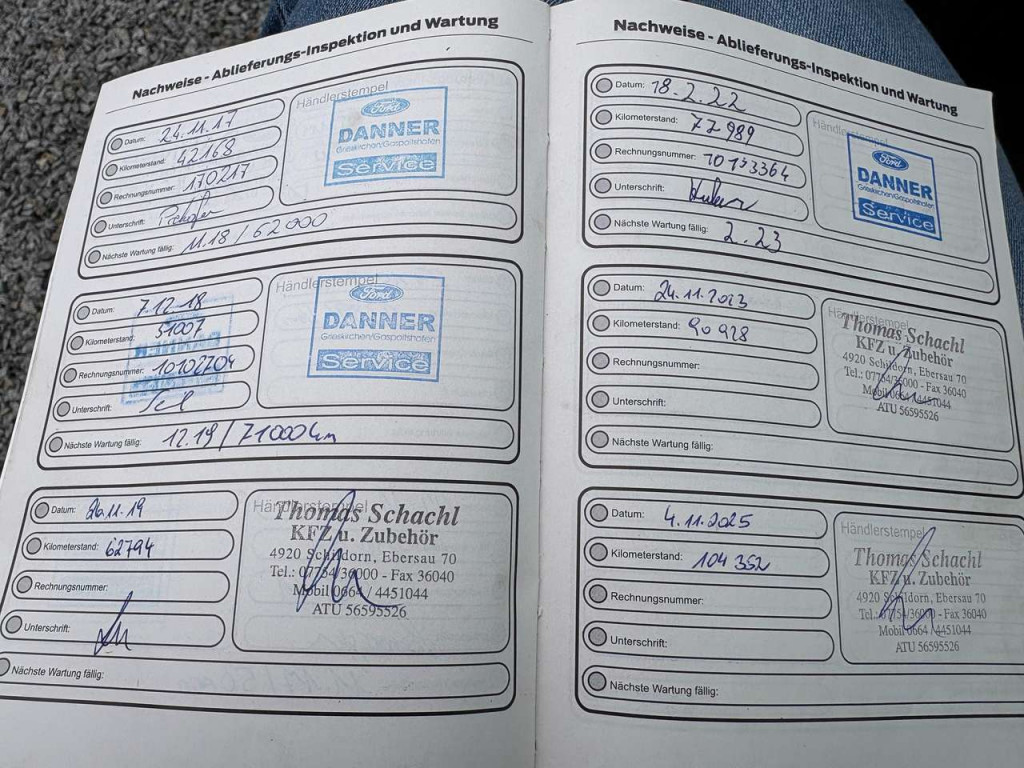 Nachweise - Ablieferungs-Inspektion und Wartung
Datum: 24.11.17
Kilometerstand: 42168
Rechnungsnummer: 170217
Unterschrift:
Nächste Wartung fällig: 11.18 / 62000
Händlerstempel
Ford
DANNER
Grieskirchen/Gaspoltshofen
Service
Datum: 7.12.18
Kilometerstand: 51007
Rechnungsnummer: 10102704
Unterschrift:
Nächste Wartung fällig: 12.19 / 71000 km
Händlerstempel
Ford
DANNER
Grieskirchen/Gaspoltshofen
Service
Datum: 26.11.19
Kilometerstand: 62794
Rechnungsnummer:
Unterschrift:
Nächste Wartung fällig:
Händlerstempel
Thomas Schachl
KFZ u. Zubehör
4920 Schildorn, Ebersau 70
Tel.: 07754/36000 - Fax 36040
Mobil 0664 / 4451044
ATU 56595526
Nachweise - Ablieferungs-Inspektion und Wartung
Datum: 18.2.22
Kilometerstand: 77989
Rechnungsnummer: 10133364
Unterschrift:
Nächste Wartung fällig: 2.23
Händlerstempel
Ford
DANNER
Grieskirchen/Gaspoltshofen
Service
Datum: 24.11.2023
Kilometerstand: 90928
Rechnungsnummer:
Unterschrift:
Nächste Wartung fällig:
Händlerstempel
Thomas Schachl
KFZ u. Zubehör
4920 Schildorn, Ebersau 70
Tel.: 07754/36000 - Fax 36040
Mobil 0664 / 4451044
ATU 56595526
Datum: 4.11.2025
Kilometerstand: 104352
Rechnungsnummer:
Unterschrift:
Nächste Wartung fällig:
Händlerstempel
Thomas Schachl
KFZ u. Zubehör
4920 Schildorn, Ebersau 70
Tel.: 07754/36000 - Fax 36040
Mobil 0664 / 4451044
ATU 56595526